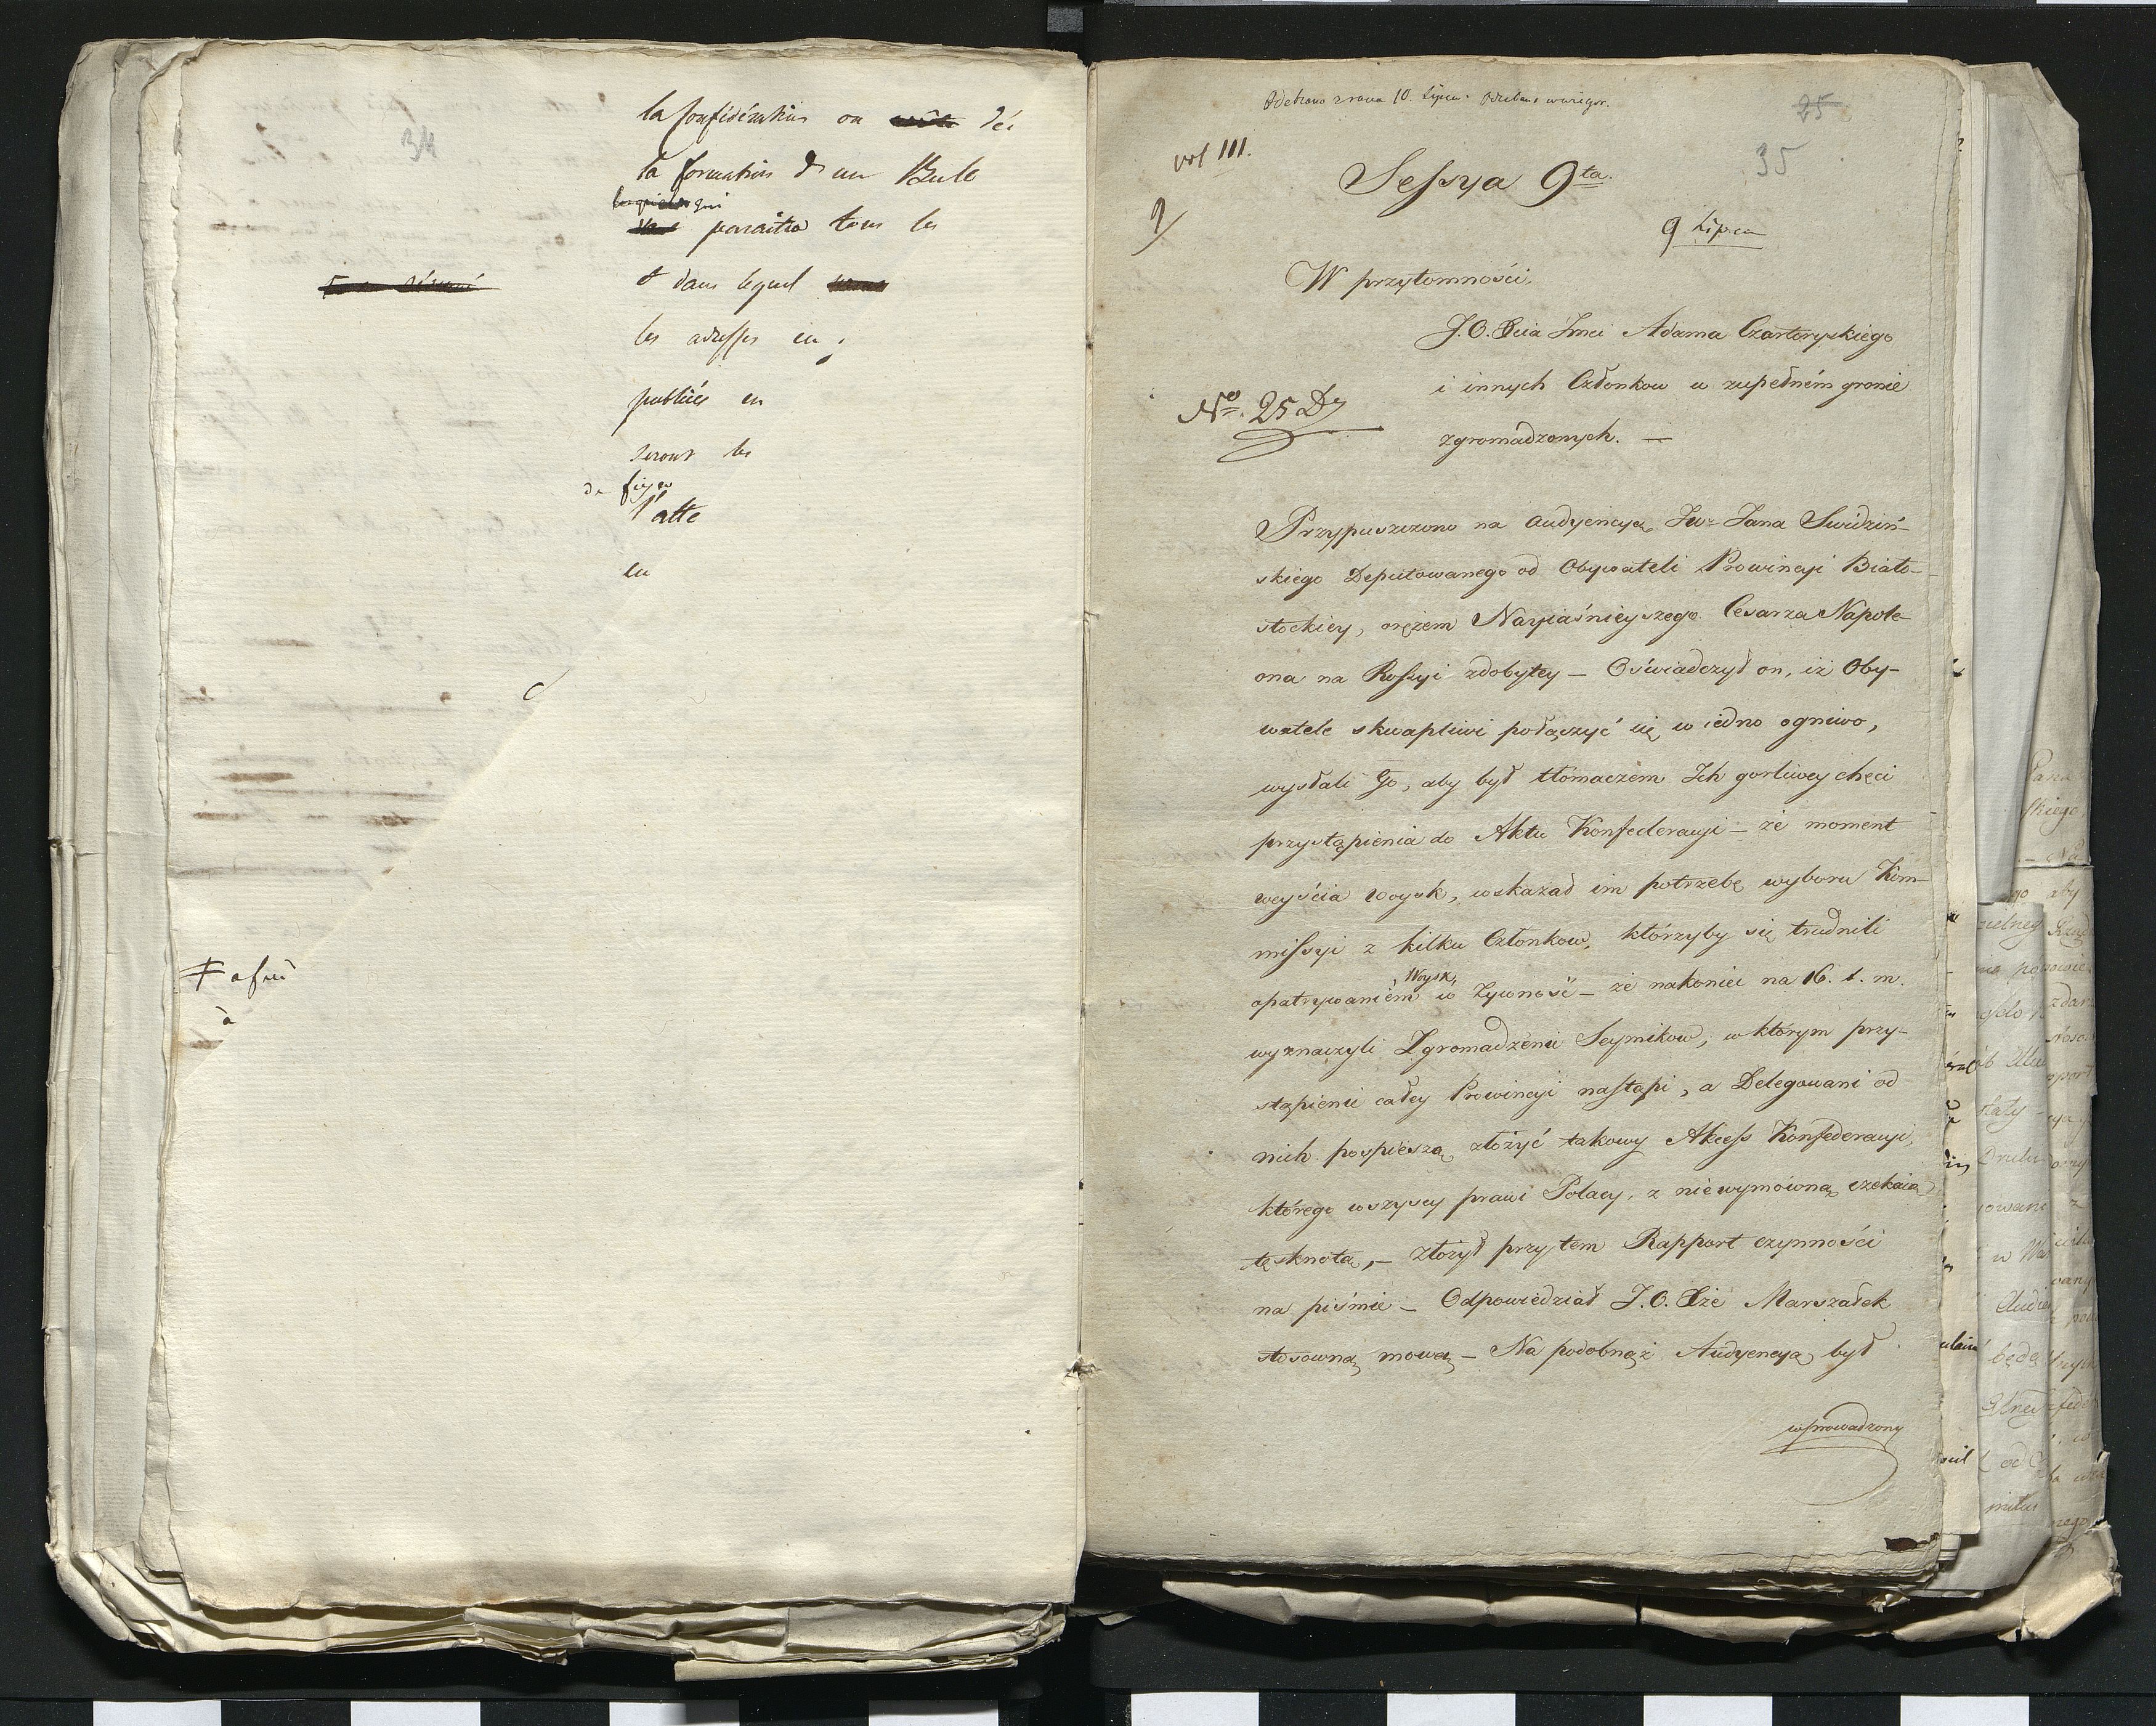 34
la confédération on des
la formation d'un Bule
qui
paraitra tous les
et dans lequel
les adresses en
publiés en
seront les
de
l'atte
en
à
Odebrano z rana 10. Lipca.
25
35
vol III.
Sessya 9ta.
9 Lipca
W przytomności
J. O. Xcia Jmci Adama Czartoryskiego
i innych Członkow w zupełném gronie
No. 25 D
zgromadzonych. —
Przypuszczono na Audyencyą JW= Jana Swidziń-
skiego Deputowanego od Obywateli Prowincyi Biało-
stockiey, orężem Nayiaśnieyszego Cesarza Napole-
ona na Rossyi zdobytey — Oświadczył on, iż Oby-
watele skwapliwi połączyć się w iedno ogniwo,
wysłali Go, aby był tłómaczem Ich gorliwey chęci
przystąpienia do Aktu Konfederacyi — że moment
weyścia woysk, wskazał im potrzebę wyboru Kom-
missyi z kilku Członkow, którzyby się trudnili
Woysk
opatrywaniem w żywność — że nakoniec na 16. t. m.
wyznaczyli Zgromadzenie Seymikow, w którym przy-
stąpienie całey Prowincyi nastąpi, a Delegowani od
nich pospieszą złożyć takowy Akcess Konfederacyi,
którego wszyscy prawi Polacy, z niewymowną czekaią
tęsknotą, — złożył przytem Rapport czynności
na piśmie — Odpowiedział J. O. Xże Marszałek
stosowną mową — Na podobnąż Audyencyą był
wprowadzony